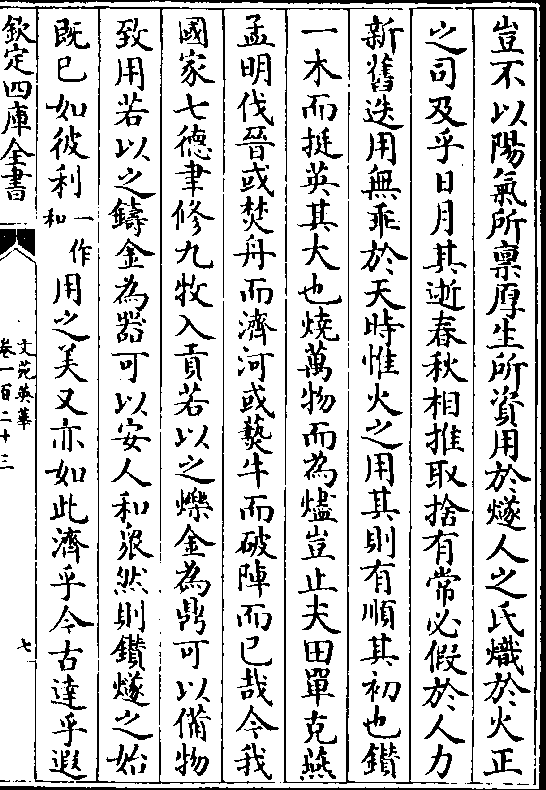 豈不以陽氣所禀厚生所資用於燧人之氏熾於火正
之司及乎日月其逝春秋相推取捨有常必假於人力
新舊迭用無乖於天時惟火之用其則有順其初也鑚
一木而挺英其大也燒萬物而為燼豈止夫田單克燕
孟明伐晉或焚舟而濟河或爇牛而破陣而已哉今我
國家七德聿修九牧入貢若以之爍金為鼎可以備物
致用若以之鑄金為器可以安人和衆然則鑚燧之始
既已如彼利一作和用之美又亦如此濟乎今古達乎遐
欽定四庫全書
文苑英華
卷一百二十三
七